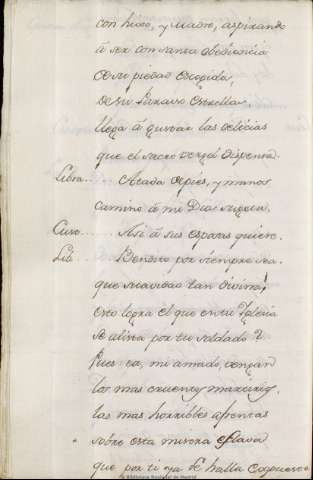 con hijo, y madre, aspirando
á ser con santa obediencia
de su piedad escogida,
de su Paraiso Estrella.
llega á gustar las delicias
que el sacro verjel dispensa.
Libra... Atada de pies, y manos
camino á mi Dios sujeta.
Curo...... Asi á sus esposas quiere.
Lib... Bendito por siempre sea.
que suavidad tan divina!
esto logra el que en tu Iglesia
se alista por tu soldado?
Pues ea, mi amado, vengan
los mas crueles martirios,
las mas horribles afrentas
sobre esta misera esclava
que por ti ya se halla
Biblioteca Nacional de Madrid